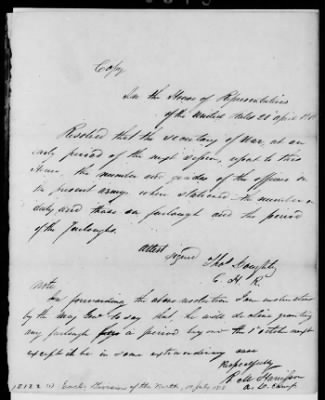 Copy
In the House of Representatives
of the United States 20 April
Resolved that the secretary of War, at an
early period of the next session, report to this
House, the number and grades of the officers in
the present army when stationed the number on
duty and those on furlough and the period
of the furloughs.
Attest
Signed Thos Dougherty
C. H. R.
Note
In forwarding the above resolution I am instructed
by the Maj Genl to say that, he will decline granting
any furlough for a period beyond the 1st October next
except it be in some extraordinary case
Respectfully
R. M. Harrison